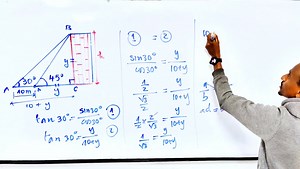 B
h
y
A 30° 45° C
10m y
10 + y
tan 30° = sin30°/cos30° ①
tan 30° = y/10+y ②
① = ②
sin30°/cos30° = y/10+y
1/2 / √3/2 = y/10+y
1/2 × 2/√3 = y/10+y
1/√3 = y/10+y
10